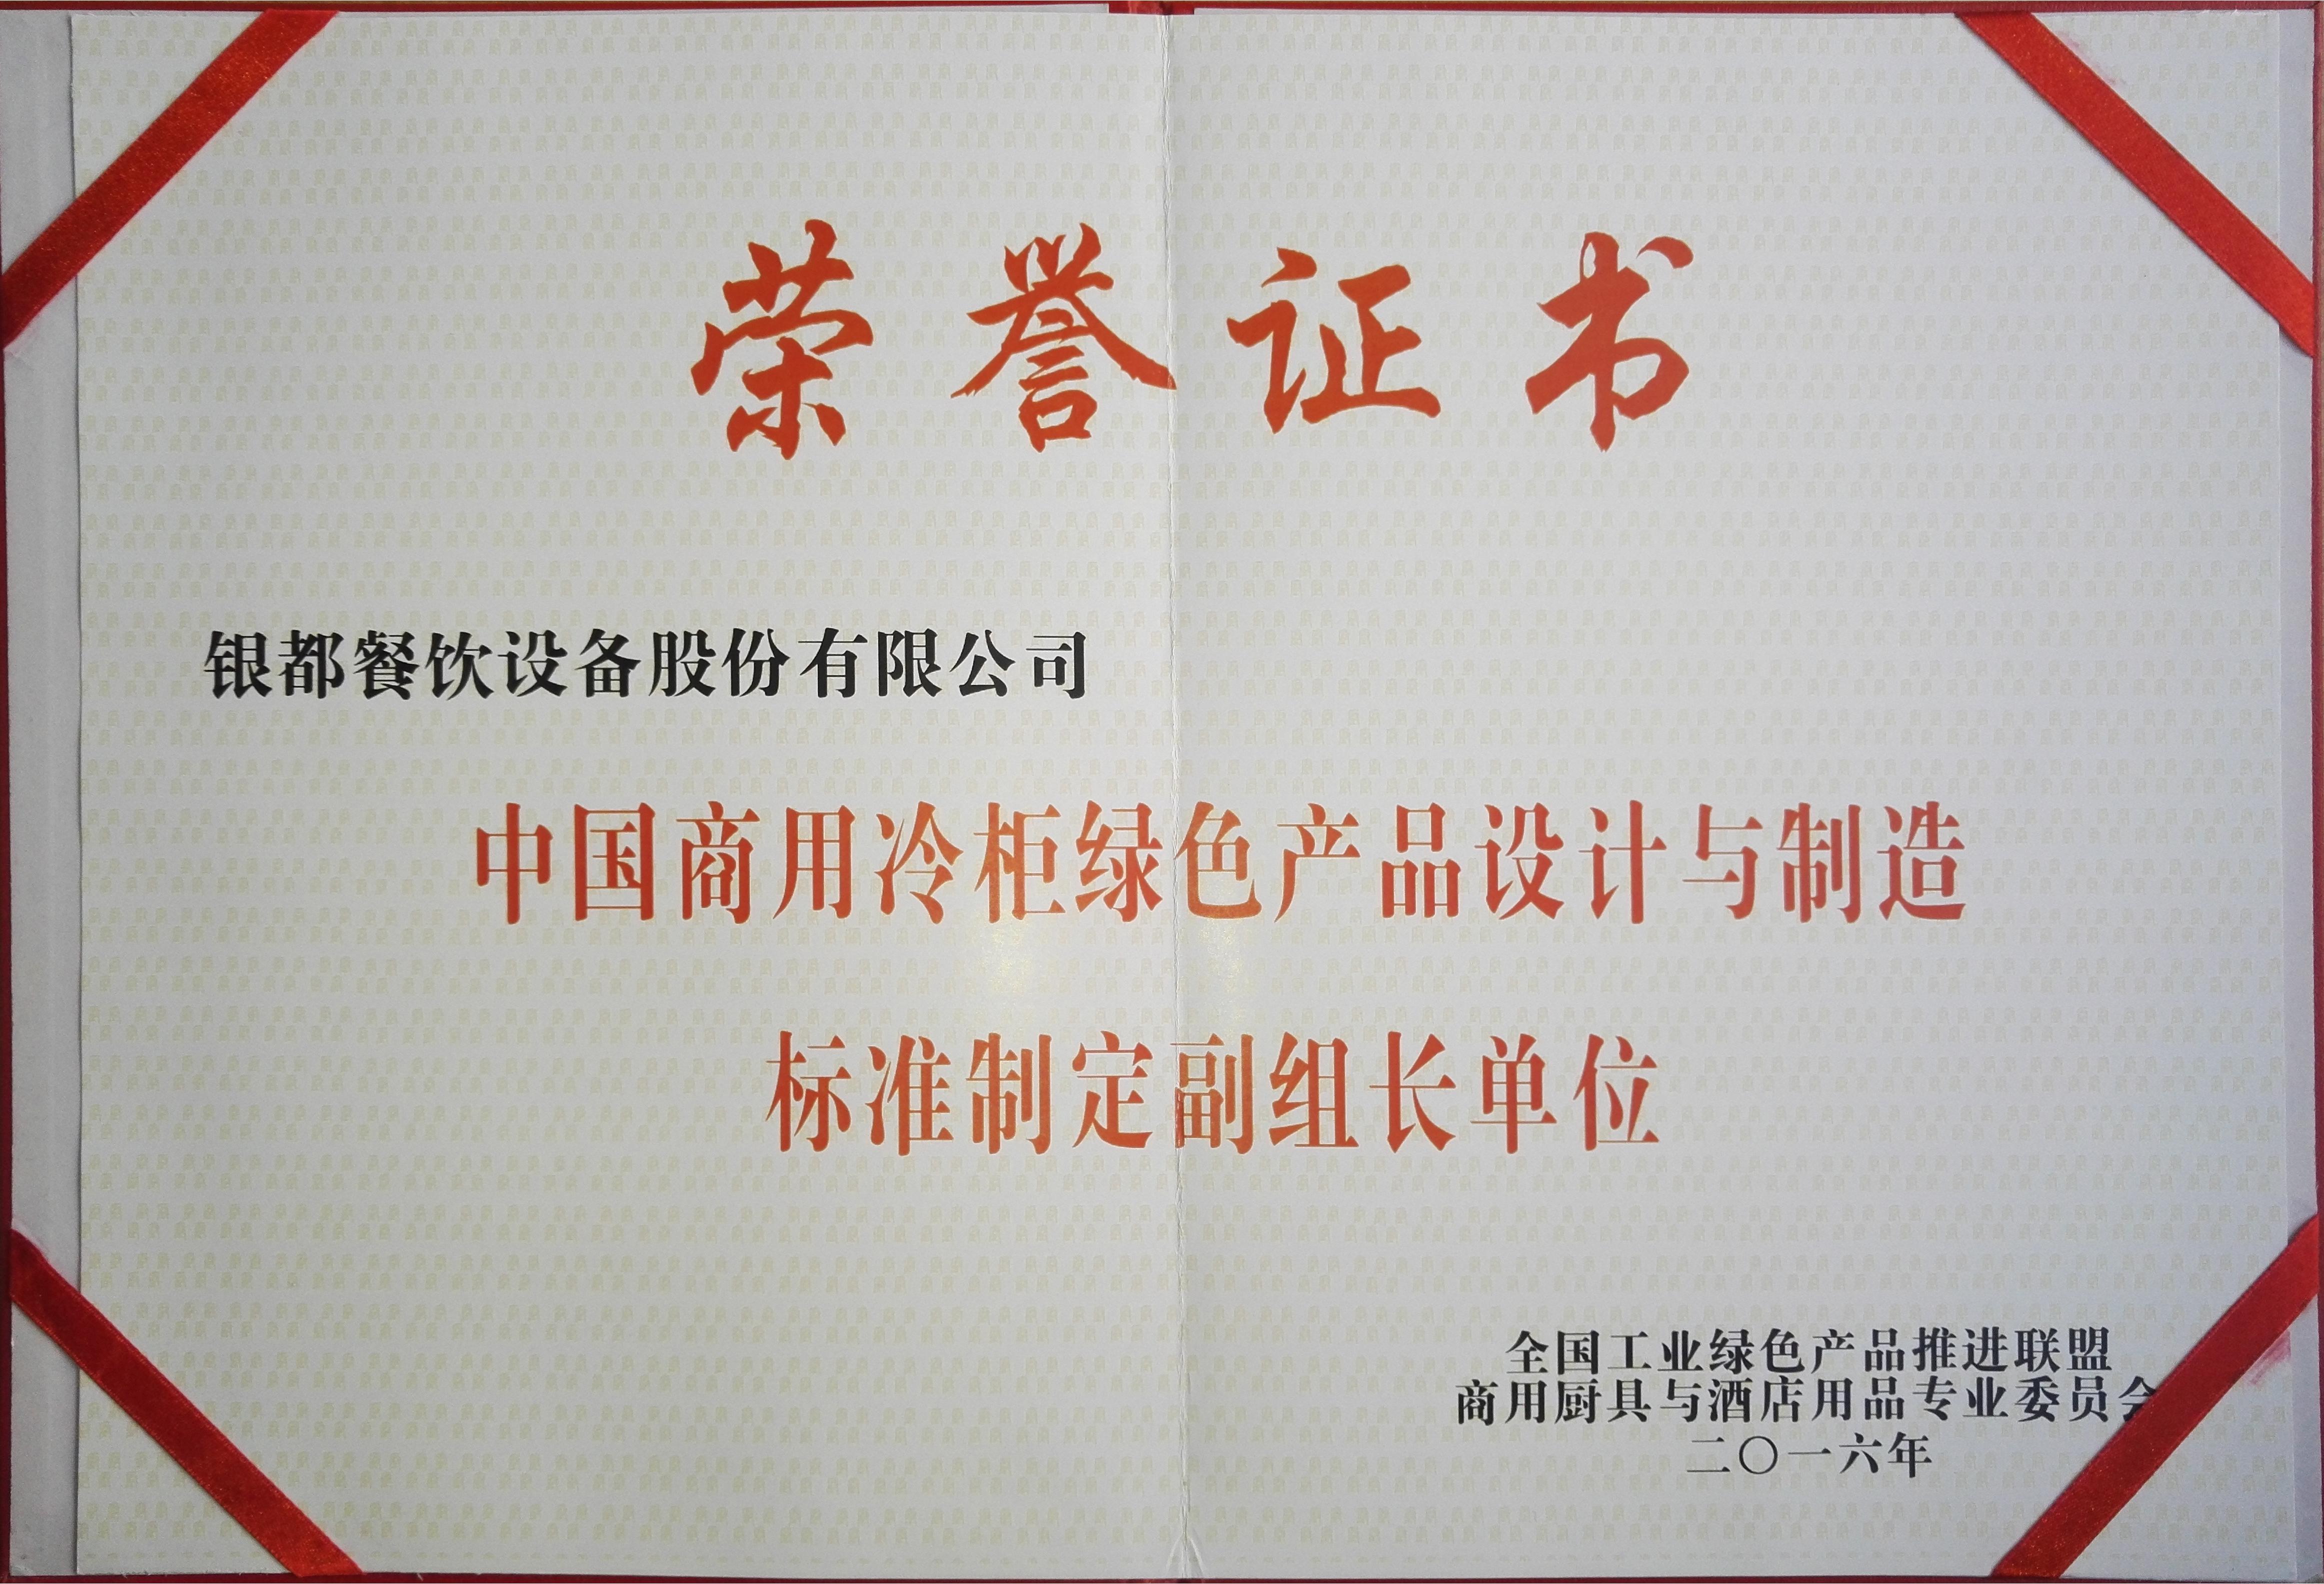 荣誉证书
银都餐饮设备股份有限公司
中国商用冷柜绿色产品设计与制造
标准制定副组长单位
全国工业绿色产品推进联盟
商用厨具与酒店用品专业委员会
二〇一六年